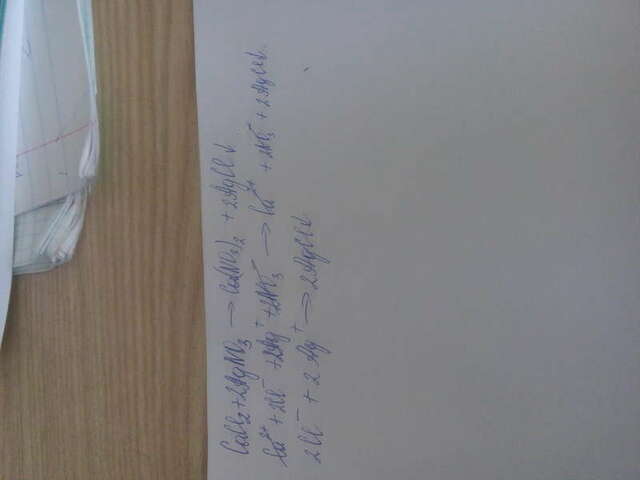 CaCl₂ + 2AgNO₃ → Ca(NO₃)₂ + 2AgCl↓
Ca²⁺ + 2Cl⁻ + 2Ag⁺ + 2NO₃⁻ → Ca²⁺ + 2NO₃⁻ + 2AgCl↓
2Cl⁻ + 2Ag⁺ → 2AgCl↓